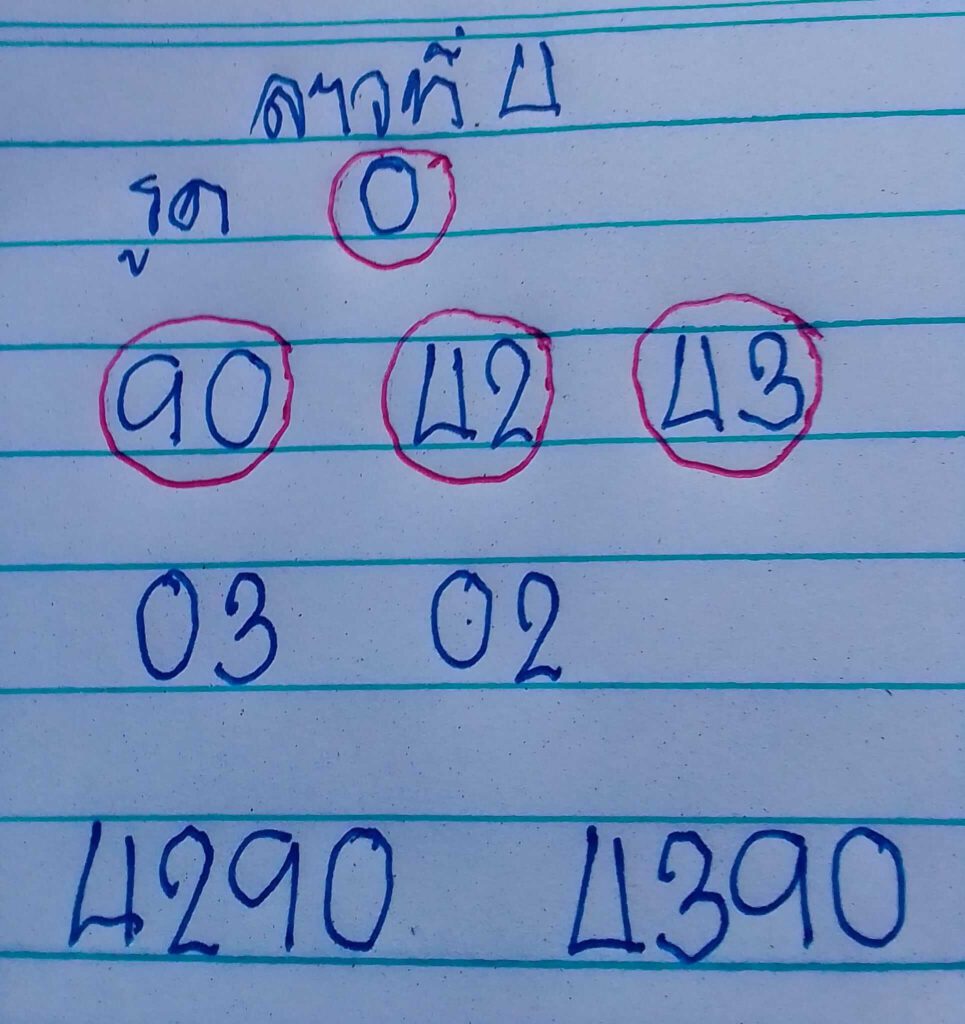 ลาวที่ 4
รูด 0
90 42 43
03 02
4290 4390